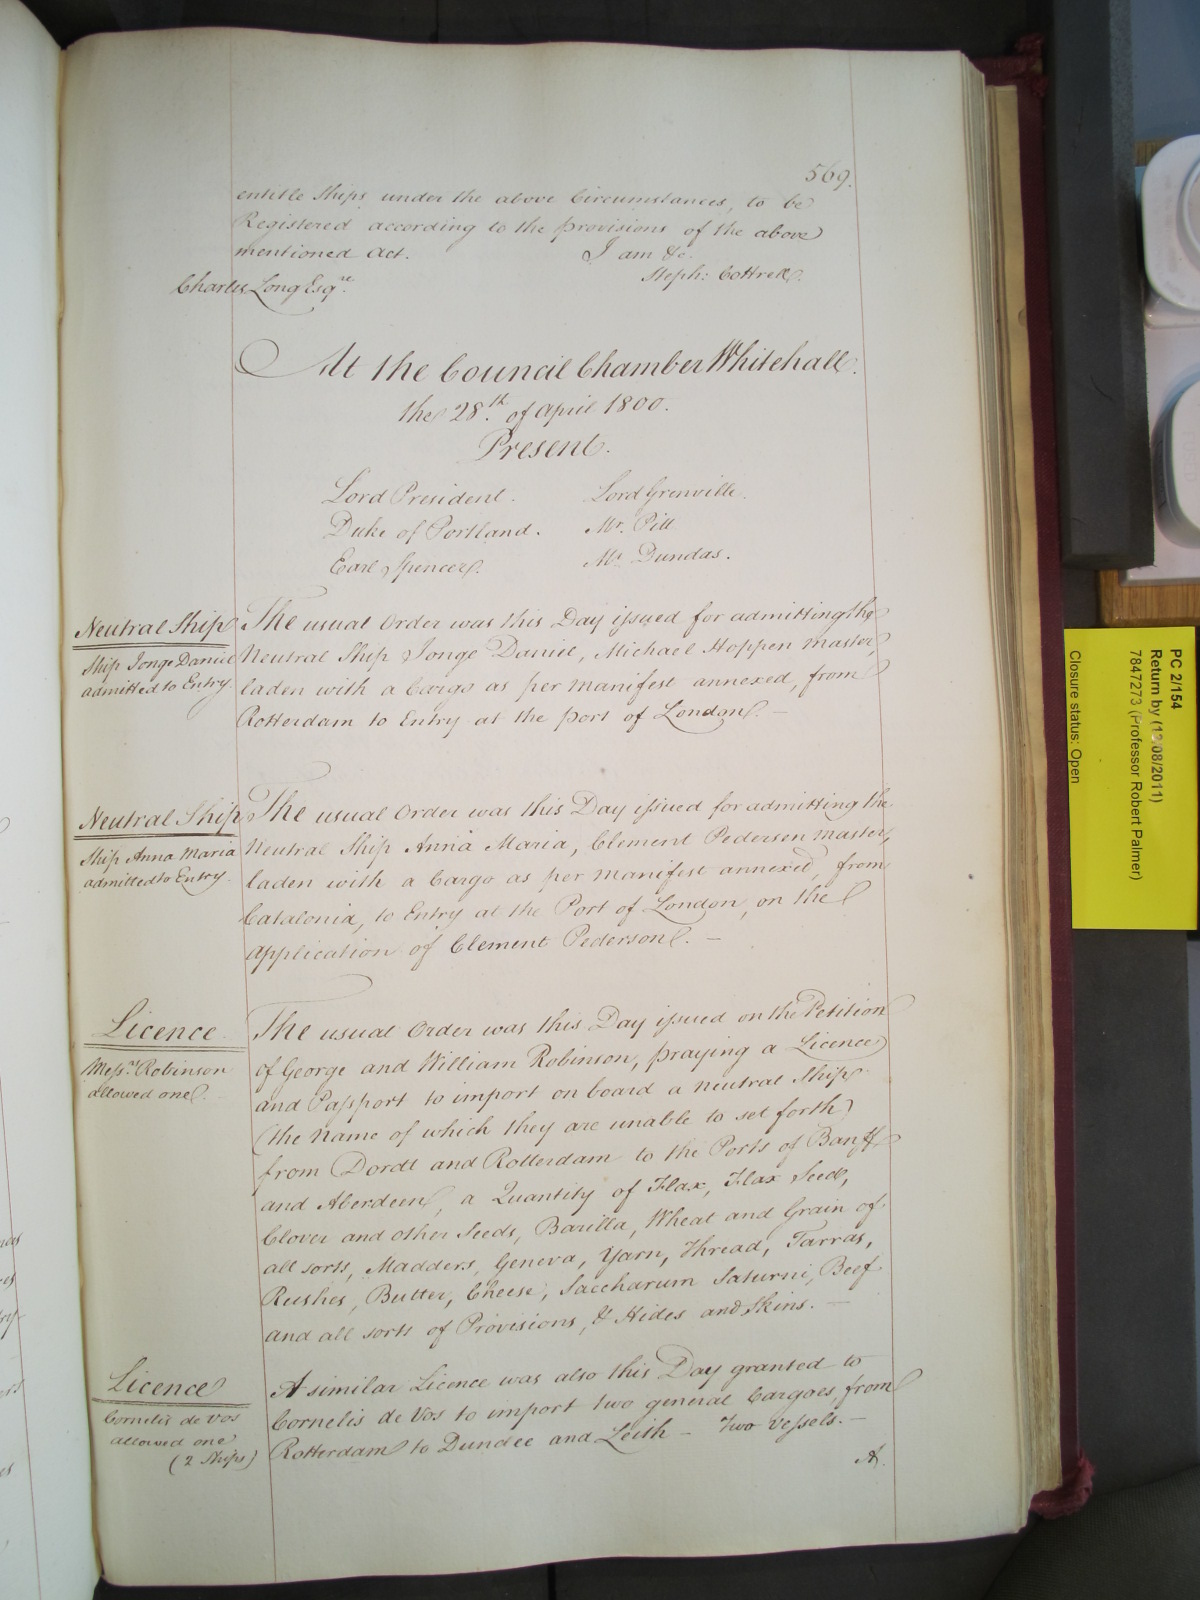 569.
entitle Ships under the above Circumstances, to be
Registered according to the provisions of the above
mentioned Act. I am &c.
Steph: Cottrell.
Charles Long Esqre.
At the Council Chamber Whitehall.
the 28th. of April 1800.
Present.
Lord President. Lord Grenville.
Duke of Portland. Mr. Pitt
Earl Spencer. Mr. Dundas.
Neutral Ship
Ship Jonge Daniel
admitted to Entry
The usual Order was this Day issued for admitting the
Neutral Ship Jonge Daniel, Michael Hoppen Master,
laden with a Cargo as per Manifest annexed, from
Rotterdam to Entry at the Port of London. —
Neutral Ship
Ship Anna Maria
admitted to Entry.
The usual Order was this Day issued for admitting the
Neutral Ship Anna Maria, Clement Pederson Master,
laden with a Cargo as per Manifest annexed, from
Catalonia, to Entry at the Port of London, on the
Application of Clement Pederson. —
Licence.
Messrs Robinson
allowed one.
The usual Order was this Day issued on the Petition
of George and William Robinson, praying a Licence
and Passport to import on board a neutral Ship
(the Name of which they are unable to set forth)
from Dordt and Rotterdam to the Ports of Banff
and Aberdeen, a Quantity of Flax, Flax Seed,
Clover and other Seeds, Barilla, Wheat and Grain of
all sorts, Madders, Geneva, Yarn, Thread, Tarras,
Rushes, Butter, Cheese, Saccharum Saturni, Beef
and all sorts of Provisions, & Hides and Skins. —
Licence
Cornelis de Vos
allowed one
(2 Ships)
A similar Licence was also this Day granted to
Cornelis de Vos to import two general Cargoes, from
Rotterdam to Dundee and Leith — Two Vessels. —
A.
PC 2/154
Return by (12/08/2011)
7847273 (Professor Robert Palmer)
Closure status: Open